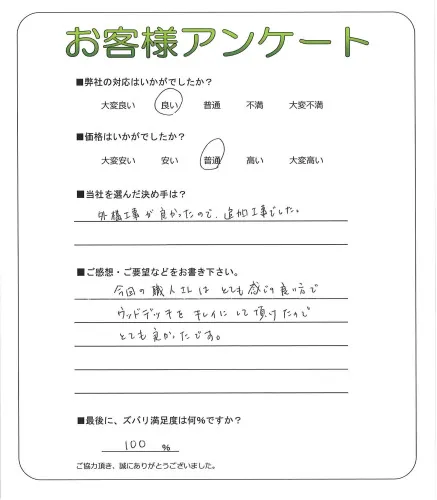 お客様アンケート
■弊社の対応はいかがでしたか？
大変良い 良い 普通 不満 大変不満
■価格はいかがでしたか？
大変安い 安い 普通 高い 大変高い
■当社を選んだ決め手は？
外構工事が良かったので、追加工事でした。
■ご感想・ご要望などをお書き下さい。
今回の職人さんはとても感じの良い方で
ウッドデッキをキレイにして頂けたので
とても良かったです。
■最後に、ズバリ満足度は何％ですか？
100 %
ご協力頂き、誠にありがとうございました。